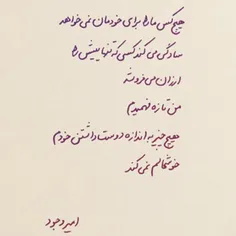 هیچ کسی ما را برای خودمان نمی خواهد
سادگی می کند کسی که تنهاییش را
ارزان می فروشد
من تازه فهمیدم
هیچ چیز به اندازه دوست داشتن خودم
خوشحالم نمی کند
امیر وجود